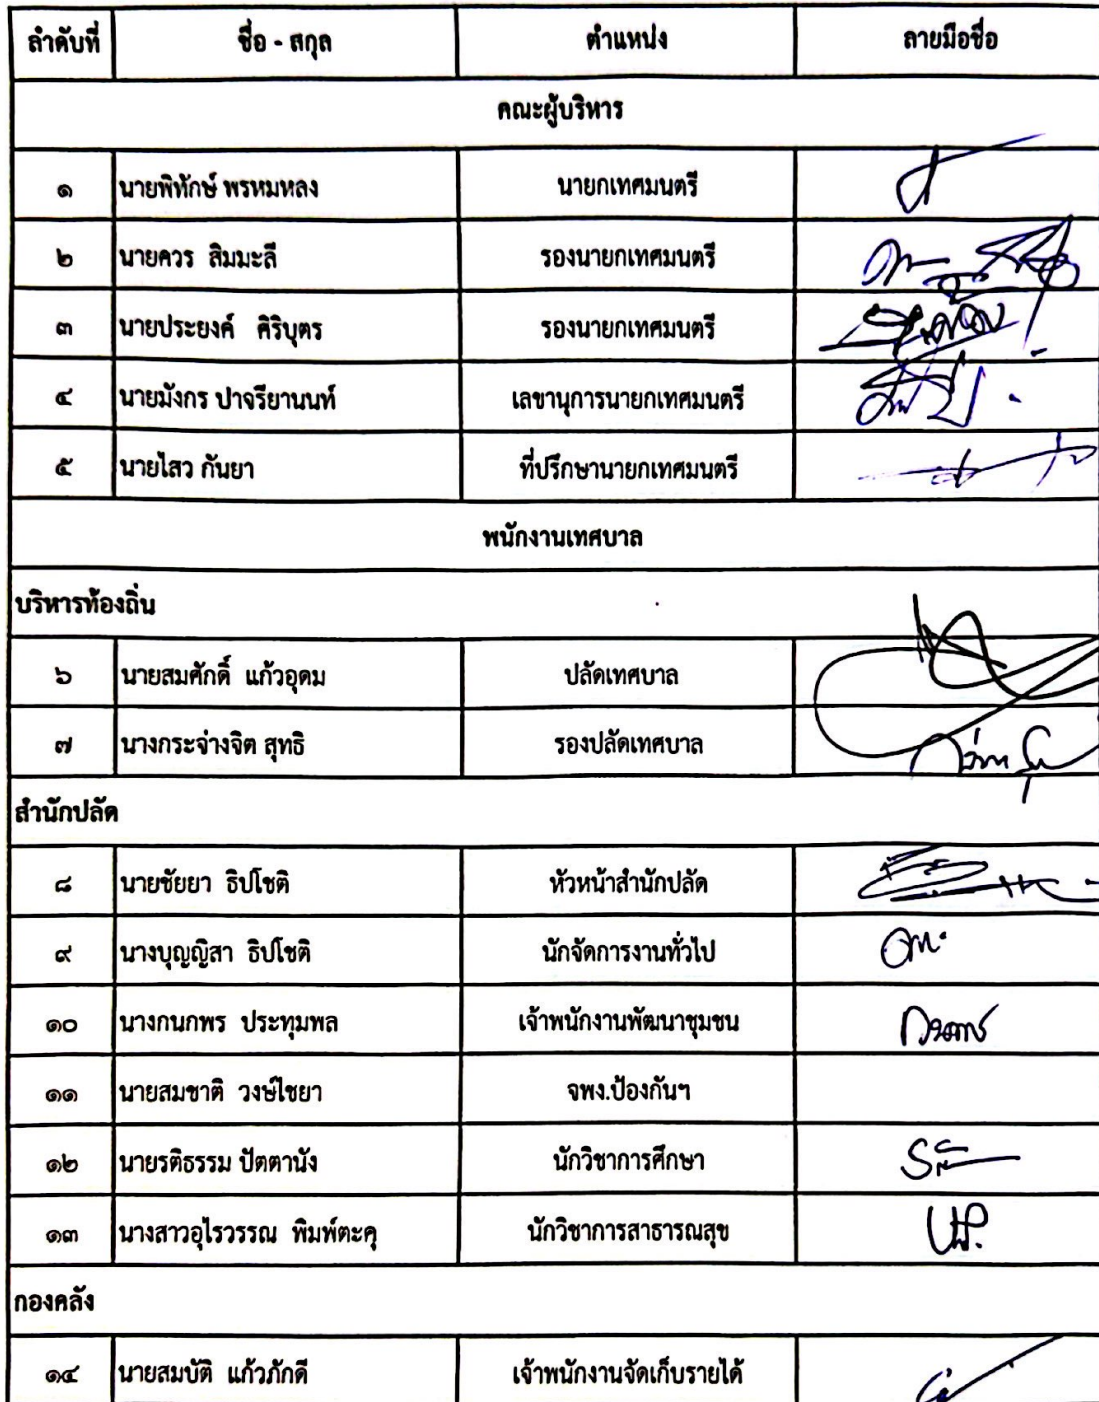 ลำดับที่ ชื่อ - สกุล ตำแหน่ง ลายมือชื่อ
คณะผู้บริหาร
๑ นายพิทักษ์ พรหมหลง นายกเทศมนตรี
๒ นายควร สิมมะลี รองนายกเทศมนตรี
๓ นายประยงค์ ศิริบุตร รองนายกเทศมนตรี
๔ นายมังกร ปาจรียานนท์ เลขานุการนายกเทศมนตรี
๕ นายไสว กันยา ที่ปรึกษานายกเทศมนตรี
พนักงานเทศบาล
บริหารท้องถิ่น
๖ นายสมศักดิ์ แก้วอุดม ปลัดเทศบาล
๗ นางกระจ่างจิต สุทธิ รองปลัดเทศบาล
สำนักปลัด
๘ นายชัยยา ธิปโชติ หัวหน้าสำนักปลัด
๙ นางบุญญิสา ธิปโชติ นักจัดการงานทั่วไป
๑๐ นางกนกพร ประทุมพล เจ้าพนักงานพัฒนาชุมชน
๑๑ นายสมชาติ วงษ์ไชยา จพง.ป้องกันฯ
๑๒ นายรติธรรม ปัตตานัง นักวิชาการศึกษา
๑๓ นางสาวอุไรวรรณ พิมพ์ตะคุ นักวิชาการสาธารณสุข
กองคลัง
๑๔ นายสมบัติ แก้วภักดี เจ้าพนักงานจัดเก็บรายได้